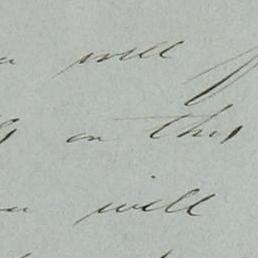 will
on this
will